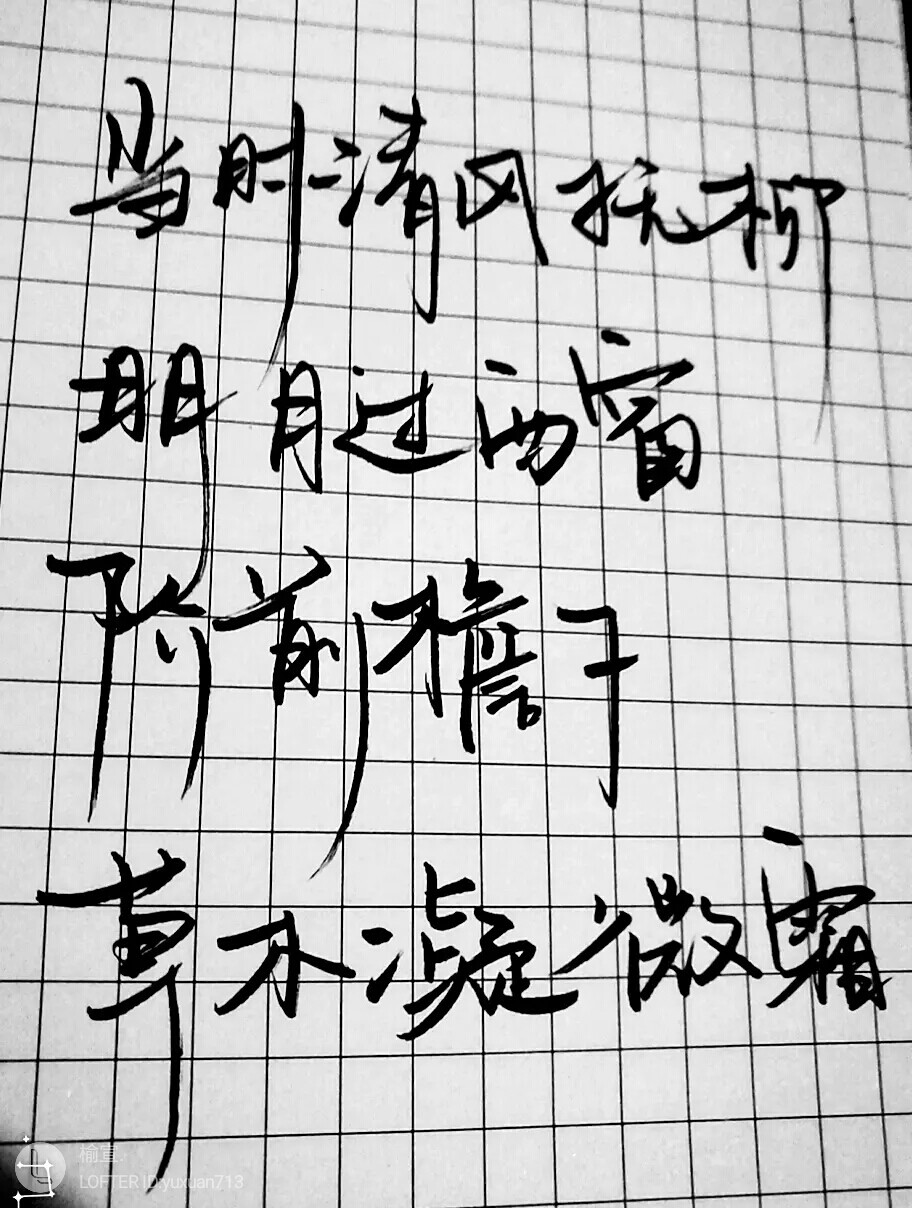 当时清风抚柳
明月过西窗
阶前檐下
草木凝微霜
榆宣
LOFTER ID:yuxuan713